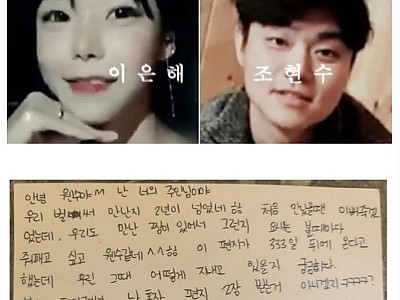 이 은 해
조 현 수
안녕 원수야 ^^ 난 너의 주인님이야
우리 벌써 만난지 2년이 넘었네 힝 처음 만났을땐 이뻐죽겠
었는데, 우리도 만난 짬이 있어서 그런지 요새는 볼때마다
줘패고 싶고 원수같네 ^^ 힝 이 편지가 333일 뒤에 온다고
했는데 우린 그때 어떻게 지내고 있을지 궁금하다.
난 혼자 편지 2장 받는거 아니겠지 ㅋㅋㅋㅋ?